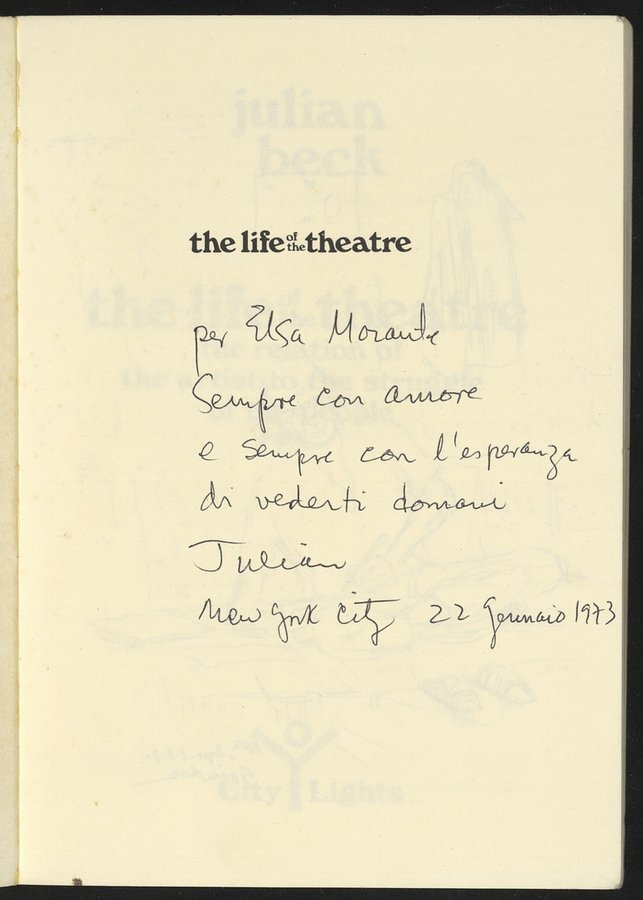 julian
beck
the life of the theatre
the life of the theatre
the relation of
the artist to the struggle
per Elsa Morante
Sempre con amore
e sempre con l'esperanza
di vederti domani
Julian
New York City 22 Gennaio 1973
City Lights